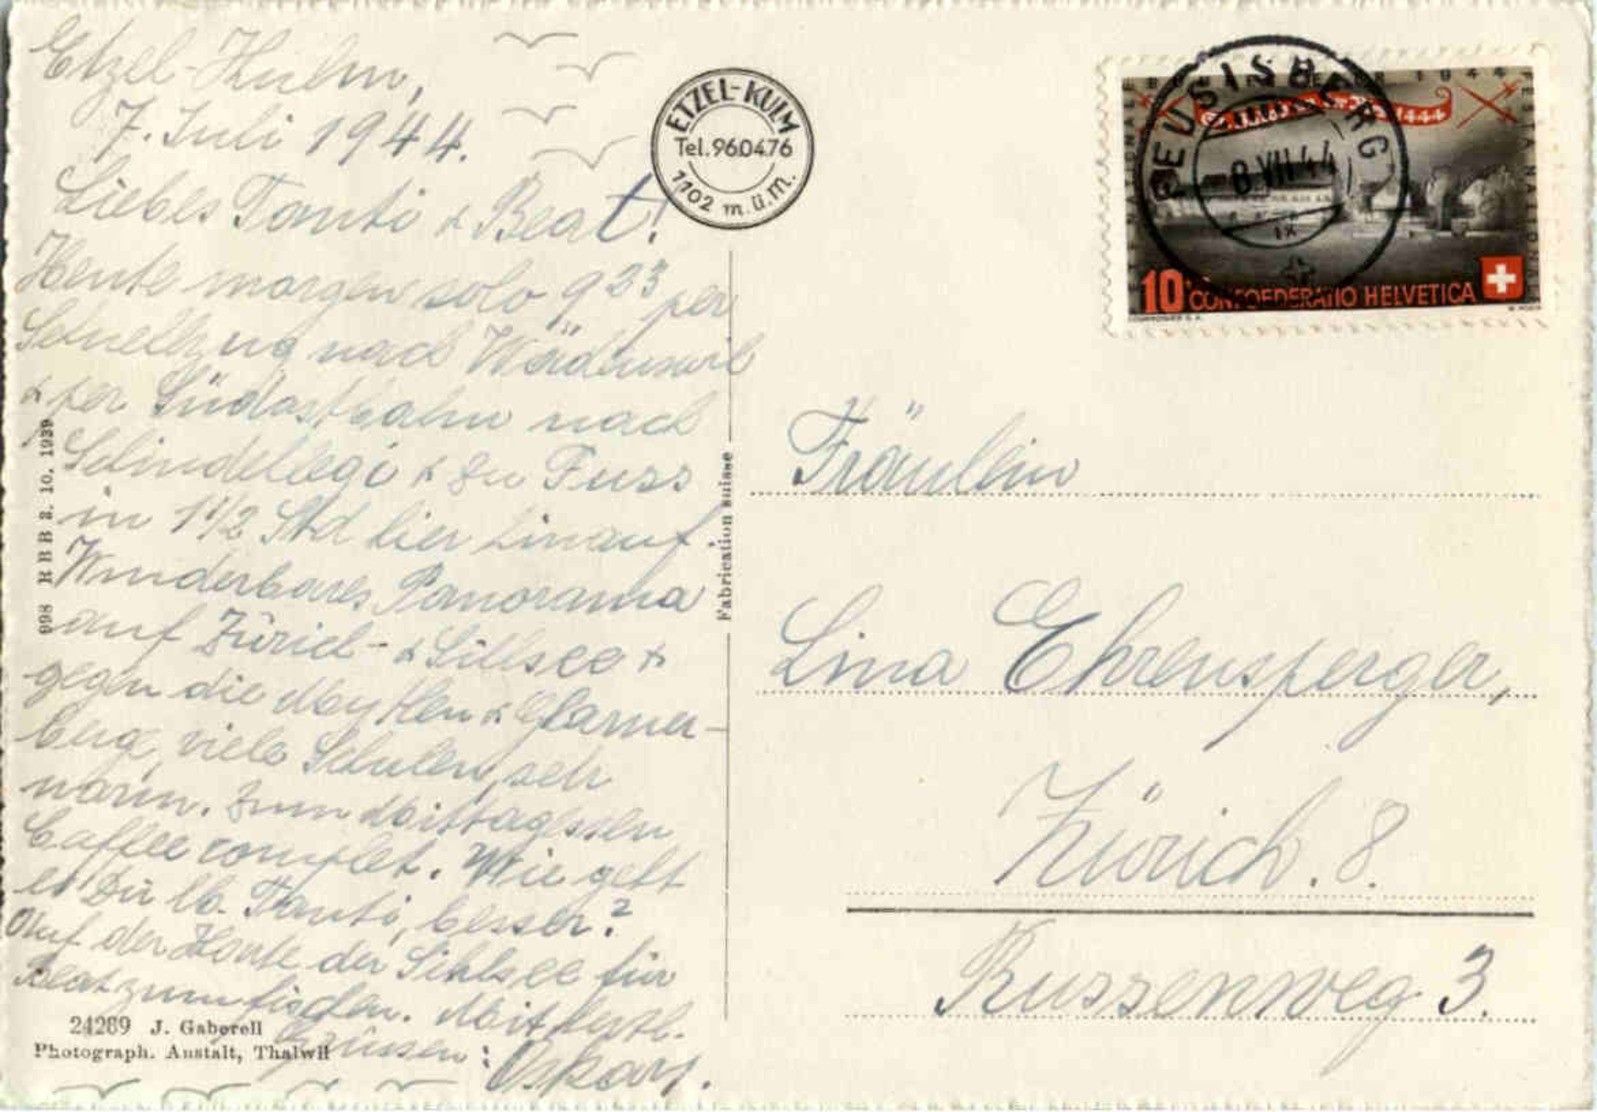 Etzel-Kulm,
7. Juli 1944.
Liebes Tanti & Beat!
Heute morgen solo 9 23 per
Schnellzug nach Wädenswil
& per Südostbahn nach
Schindellegi & zu Fuss
in 1 1/2 Std hier hinauf.
Wunderbares Panorama
auf Zürich- & Sihlsee &
gegen die Mythen & Glarner-
berge, viele Schulen, sehr
warm. Zum Mittagessen
Caffee complet. Wie geht
es Dir lb. Tanti, besser?
Auf der Karte der Sihlsee für
Beat zum fischen. Mit herzl.
Grüssen: Oskar.
998 H B B 3. 10. 1939
24289 J. Gaberell
Photograph. Anstalt, Thalwil
Fabrication suisse
ETZEL-KULM
Tel. 960476
1102 m.ü.M.
FEUSISBERG
8 VII 44
IX
1944
1444
10 CONFOEDERATIO HELVETICA
Fräulein
Lina Ehrensperger,
Zürich. 8.
Russenweg 3.